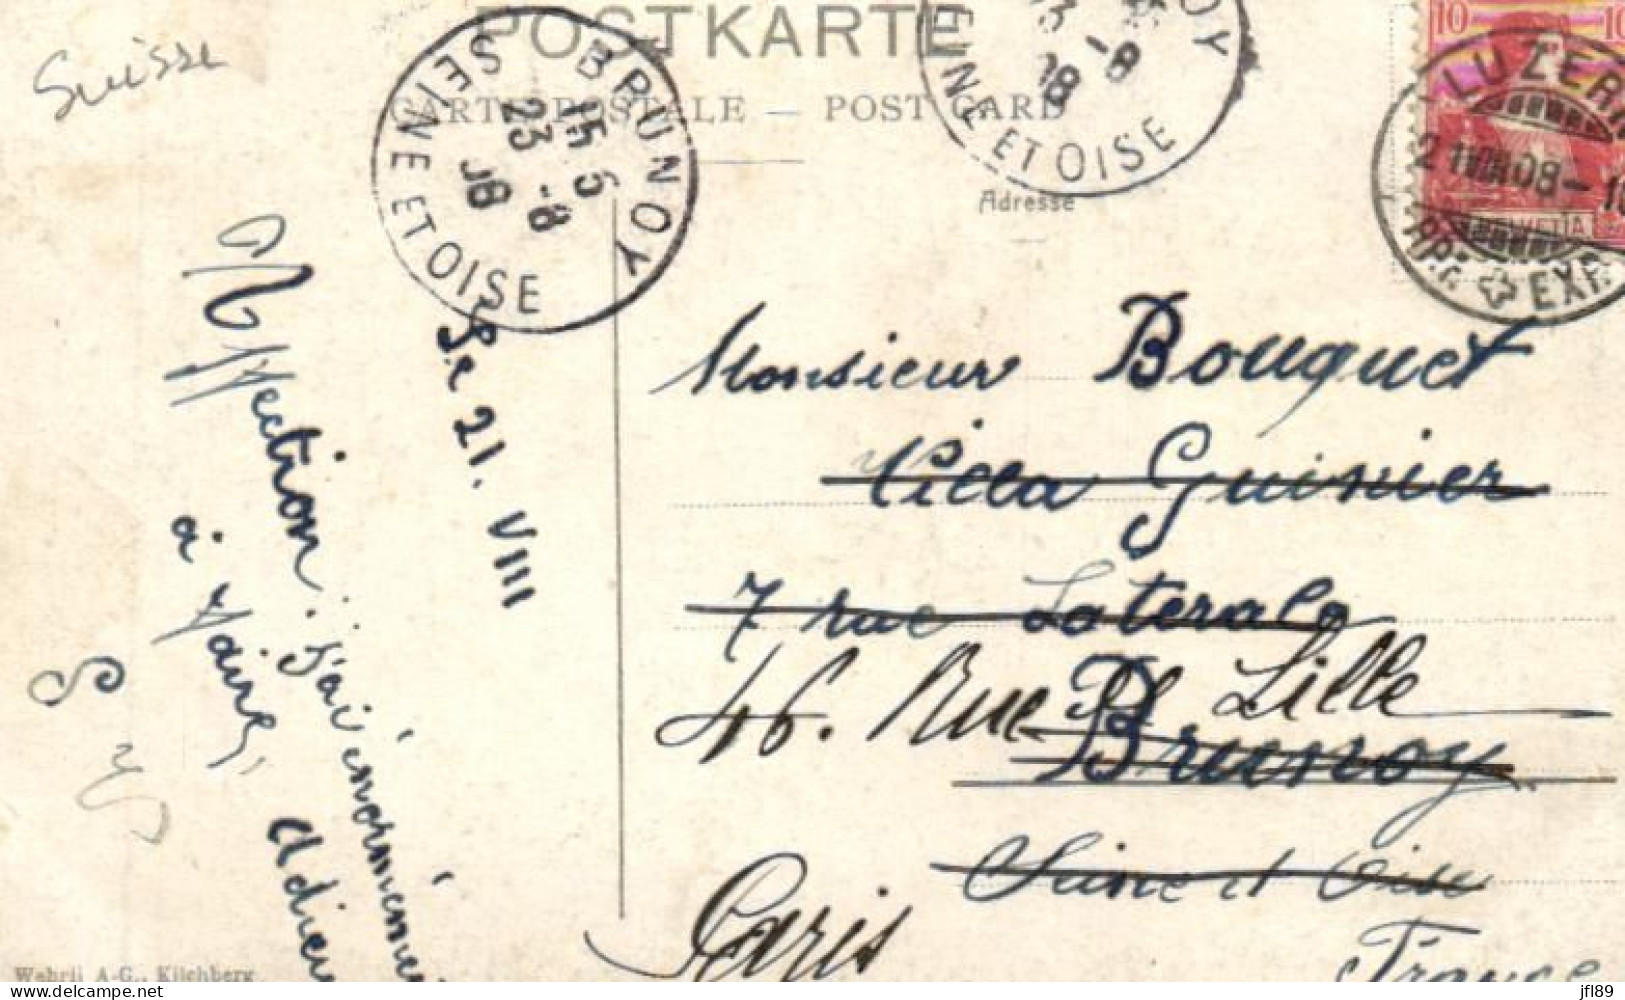 Suisse
POSTKARTE
CARTE POSTALE — POST CARD
BRUNOY
15 5
23 -8
08
SEINE ET OISE
-8
SEINE ET OISE
10
10
LUZERN
21 VIII 08 - 10
HELVETIA
EXP.
Adresse
Le 21. VIII
Affection. J'ai énormément
à faire,
Adieu
Monsieur Bouquet
Villa Guinier
7 rue Laterale
46. Rue de Lille
Brunoy
Seine et Oise
Paris
France
Wehrli A-G., Kilchberg
delcampe.net
jfl89